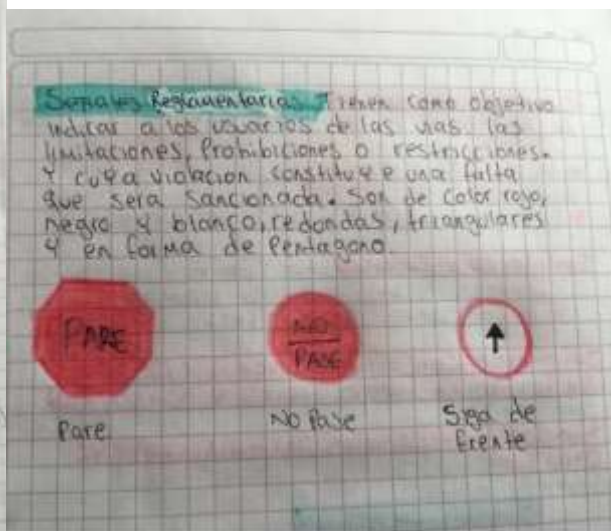 Señales Reglamentarias Tienen como objetivo
indicar a los usuarios de las vias las
limitaciones, Prohibiciones o restricciones.
Y cuya violacion constituye una falta
que sera sancionada. Son de color rojo,
negro y blanco, redondas, triangulares
y en forma de Pentagono.
PARE
NO
PASE
Pare
NO Pase
Siga de
frente